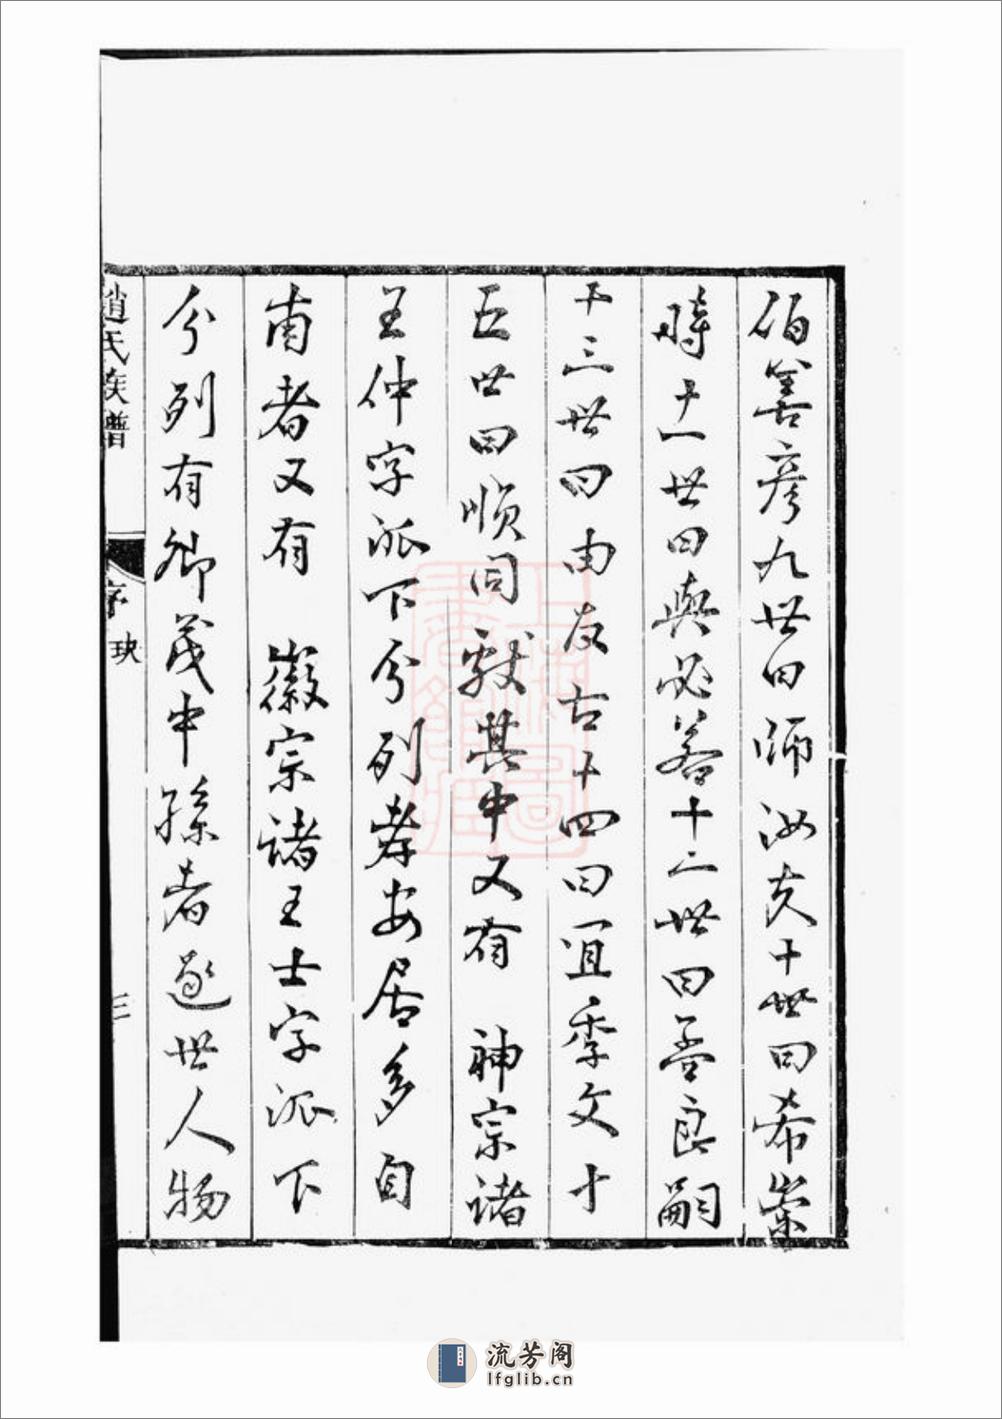 伯善彦九世曰師汝夫十世曰希崇
時十一世曰與必若十二世曰孟良嗣
十三世曰由友古十四曰宜季文十
五世曰順同獻其中又有 神宗諸
王仲字派下分列孝安居多自
南者又有 徽宗諸王士字派下
分列有卿茂中孫者逐世人物
趙氏族譜
序
三
流芳阁
lfglib.cn